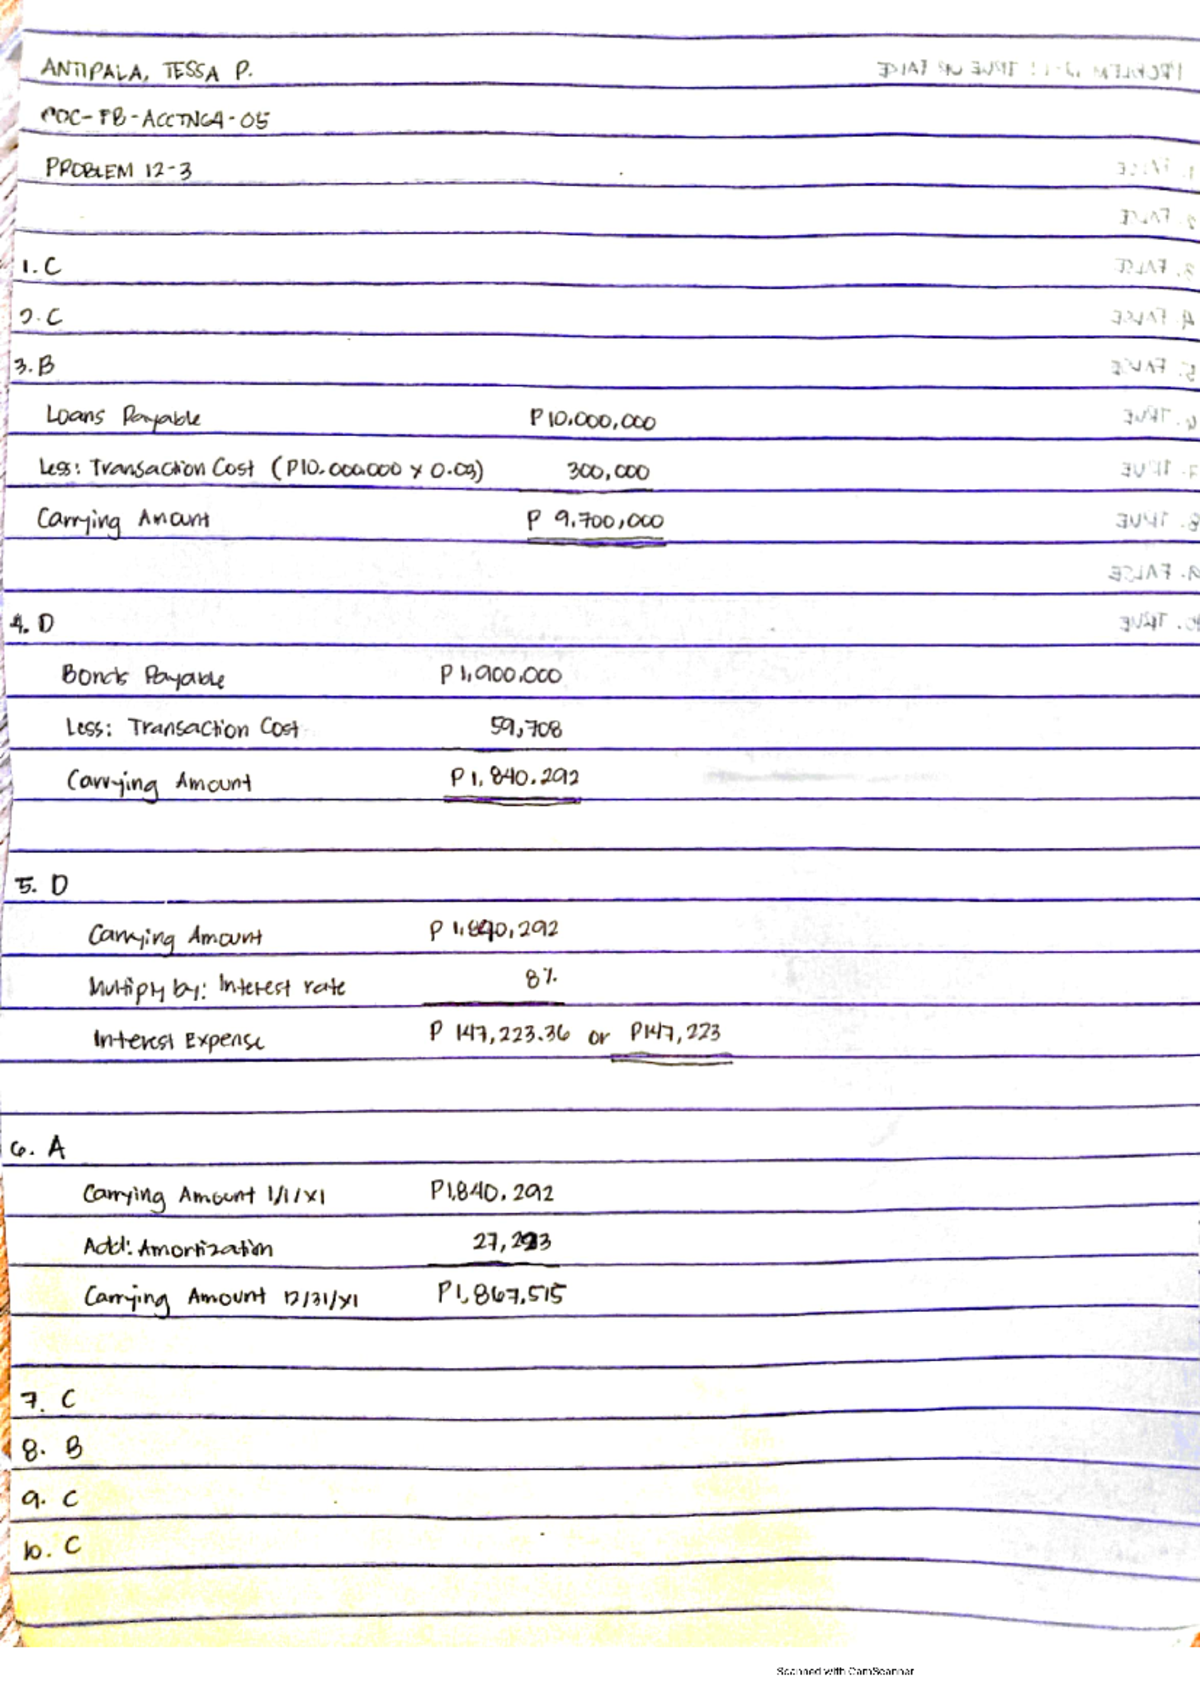 ANTIPALA, TESSA P.
PROBLEM 12-3
1. C
2. C
3. B
Loans Payable P10,000,000
Less: Transaction Cost (P10,000,000 x 0.03) 300,000
Carrying Amount P 9,700,000
4. D
Bonds Payable P1,900,000
Less: Transaction Cost 59,708
Carrying Amount P1,840,292
5. D
Carrying Amount P 1,840,292
Multiply by: Interest rate 8%
Interest Expense P 147,223.36 or P147,223
6. A
Carrying Amount 1/1/X1 P1,840,292
Add: Amortization 27,223
Carrying Amount 12/31/X1 P1,867,515
7. C
8. B
9. C
10. C
TRUE OR FALSE
1. FALSE
2. FALSE
3. FALSE
4. FALSE
5. FALSE
6. TRUE
7. TRUE
8. TRUE
9. FALSE
10. TRUE
Scanned with CamScanner